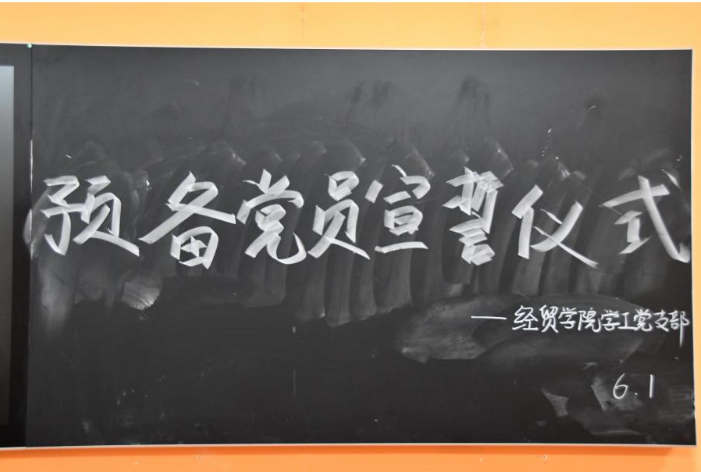 预备党员宣誓仪式
——经贸学院学工党支部
6.1